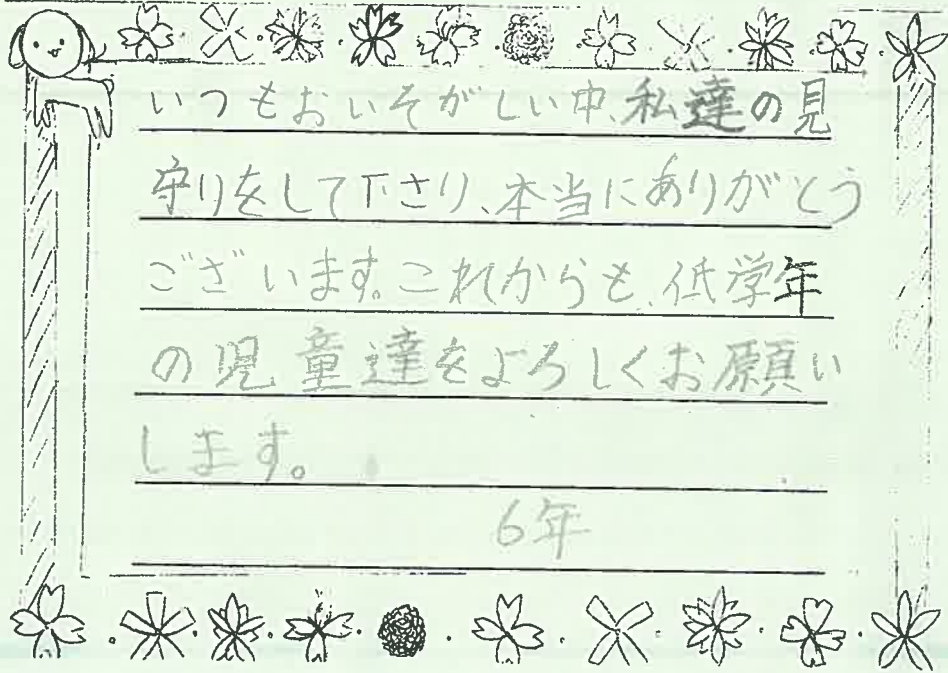 いつもおいそがしい中、私達の見
守りをして下さり、本当にありがとう
ございます。これからも、低学年
の児童達をよろしくお願い
します。
6年